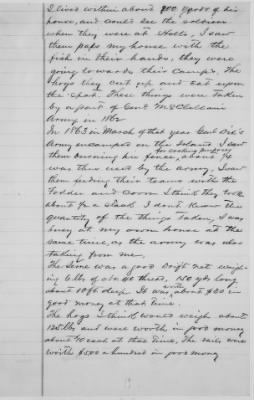 I lived within about 900 yards of his
house, and could see the soldiers
when they were at Halls, I saw
them pass my house with the
fish in their hands, they were
going towards their Camps. The
hogs they cut up and eat upon
the spot. These things were taken
by a part of Genl McClellans
Army in 1862
In 1863 in March of that year Genl Dix's
Army encamped on the Island I saw
for cooking purposes
them burning his fence, about 3/4
was then used by the army, I saw
them feeding their teams with the
Fodder and corn I think they took
about a stack I don't know the
quantity of the things taken, I was
busy at my own house at the
same time, as the army was also
taking from me.
The seine was a good Drift net weigh-
ing lbs of No 20 thread, 150 yds long
about 18 ft deep. It was worth about $80 in
good money at that time.
The hogs I think would weigh about
125 lbs and were worth in good money
about 10 each at that time, The rails were
worth $5.00 a hundred in good money